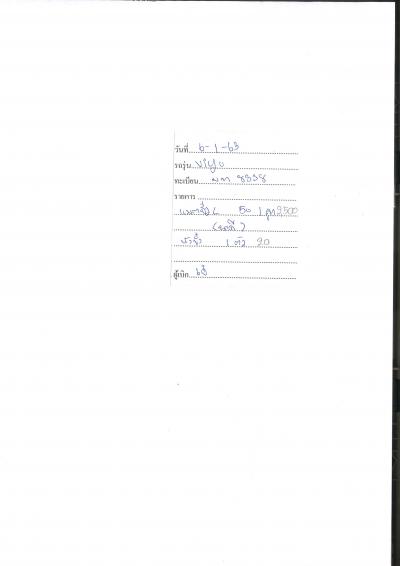 วันที่ 6-1-63
รถรุ่น Vigo
ทะเบียน 8338
รายการ
แบตเตอรี่ 50 1 ลูก 2500
1 ตัว 20
ผู้เบิก